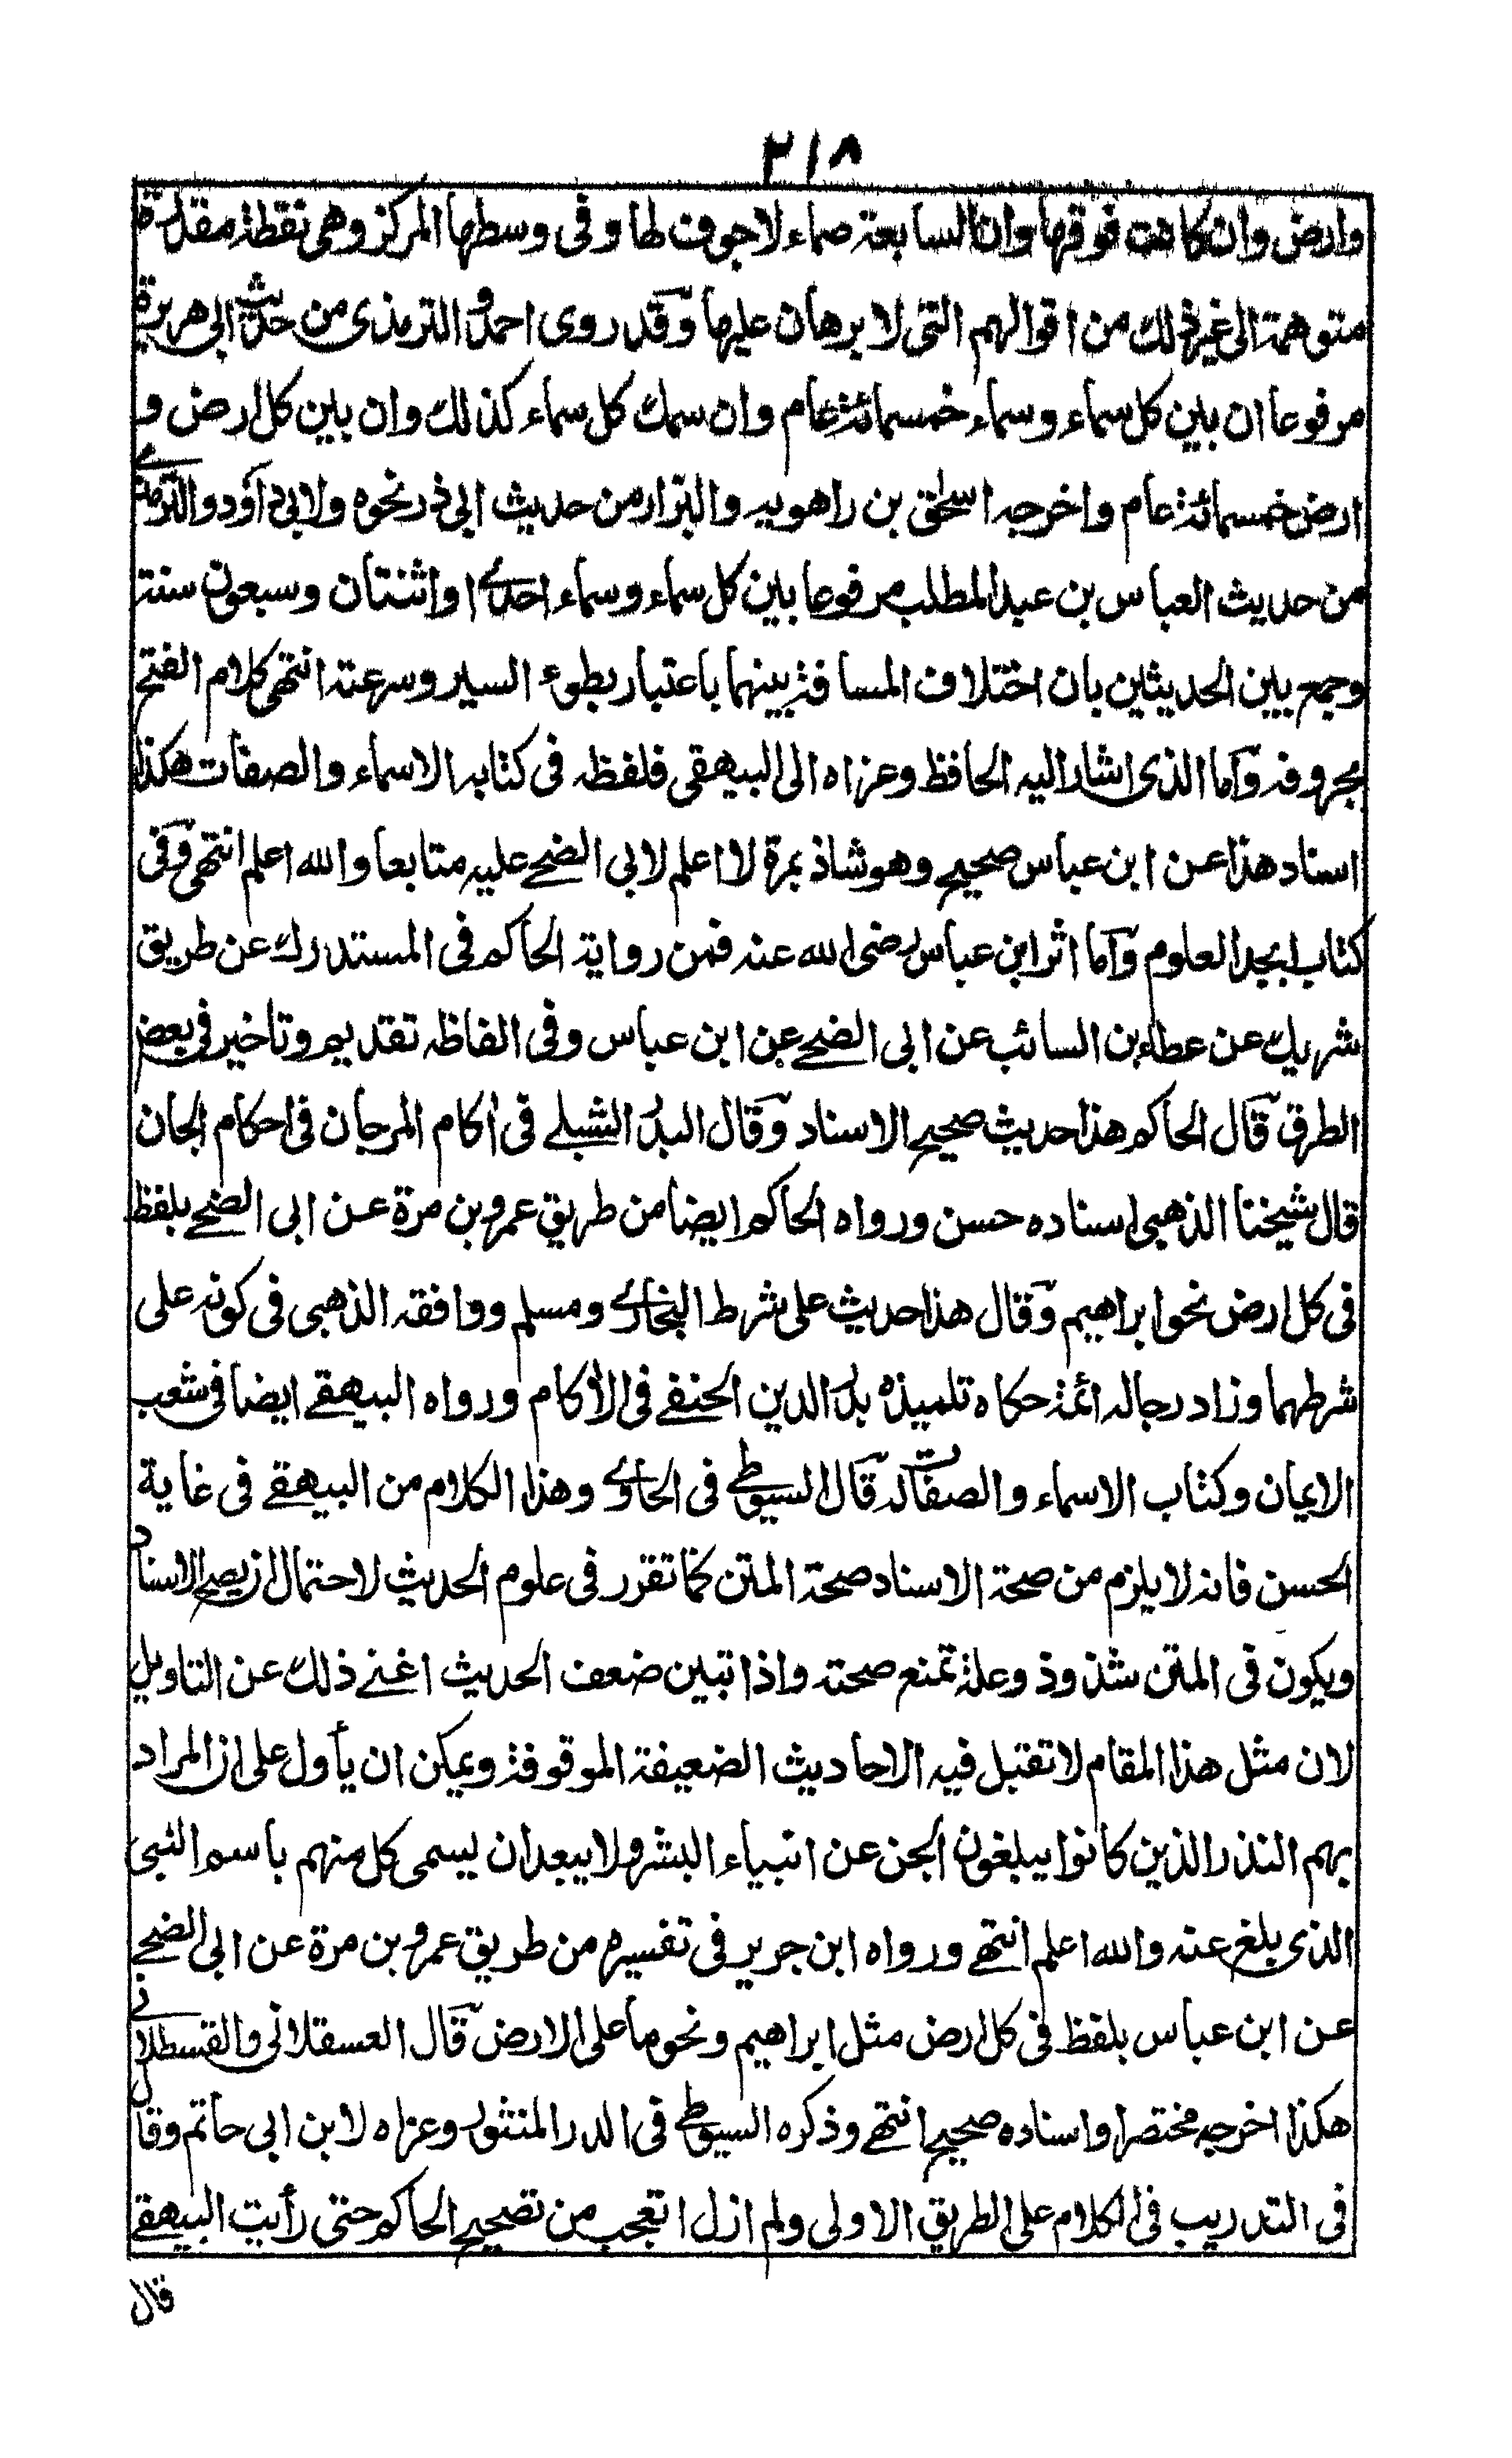 ٢١٨
وارض وان كانت فوقها وان السابعة صماء لا جوف لها وفى وسطها المركز وهى نقطة مقدرة
متوهمة الى غير ذلك من اقوالهم التى لا برهان عليها وقد روى احمد والترمذى من حديث ابى هريرة
مرفوعا ان بين كل سماء وسماء خمسمائة عام وان سمك كل سماء كذلك وان بين كل ارض و
ارض خمسمائة عام واخرجه اسحق بن راهويه والبزار من حديث ابى ذر نحوه ولابى داود والترمذے
من حديث العباس بن عبد المطلب مرفوعا بين كل سماء وسماء احدے او اثنتان وسبعون سنة
وجمع بين الحديثين بان اختلاف المسافة بينهما باعتبار بطوء السير وسرعته انتهى كلام الفتح
بحروفه واما الذى اشار اليه الحافظ وعزاه الى البيهقى فلفظه فى كتابه الاسماء والصفات هكذا
اسناد هذا عن ابن عباس صحيح وهو شاذ بمرة لا اعلم لابى الضحے عليه متابعا والله اعلم انتهى وفى
كتاب ابجد العلوم واما اثر ابن عباس رضى الله عنه فمن رواية الحاكم فى المستدرك عن طريق
شريك عن عطاء بن السائب عن ابى الضحے عن ابن عباس وفى الفاظه تقديم وتاخير فى بعض
الطرق قال الحاكم هذا حديث صحيح الاسناد وقال البدر الشبلے فى آكام المرجان فى احكام الجان
قال شيخنا الذهبى اسناده حسن ورواه الحاكم ايضا من طريق عمرو بن مرة عن ابى الضحے بلفظ
فى كل ارض نحو ابراهيم وقال هذا حديث على شرط البخارے ومسلم ووافقه الذهبى فى كونه على
شرطهما وزاد رجاله ائمة حكاه تلميذه بدر الدين الحنفے فى الآكام ورواه البيهقے ايضا فى شعب
الايمان وكتاب الاسماء والصفات له قال السيوطے فى الحاوے وهذا الكلام من البيهقے فى غاية
الحسن فانه لا يلزم من صحة الاسناد صحة المتن كما تقرر فى علوم الحديث لاحتمال ان يصح الاسناد
ويكون فى المتن شذوذ وعلة تمنع صحته واذا تبين ضعف الحديث اغنے ذلك عن التاويل
لان مثل هذا المقام لا تقبل فيه الاحاديث الضعيفة الموقوفة ويمكن ان يأول على ان المراد
بهم النذر الذين كانوا يبلغون الجن عن انبياء البشر ولا يبعد ان يسمى كل منهم باسم النبى
الذى بلغ عنه والله اعلم انتهے ورواه ابن جرير فى تفسيره من طريق عمرو بن مرة عن ابى الضحے
عن ابن عباس بلفظ فى كل ارض مثل ابراهيم ونحو ما على الارض قال العسقلانى والقسطلانے
هكذا اخرجه مختصرا واسناده صحيح انتهے وذكره السيوطے فى الدر المنثور وعزاه لابن ابى حاتم وقال
فى التدريب فى الكلام على الطريق الاولى ولم ازل اتعجب من تصحيح الحاكم حتى رأيت البيهقے
قال